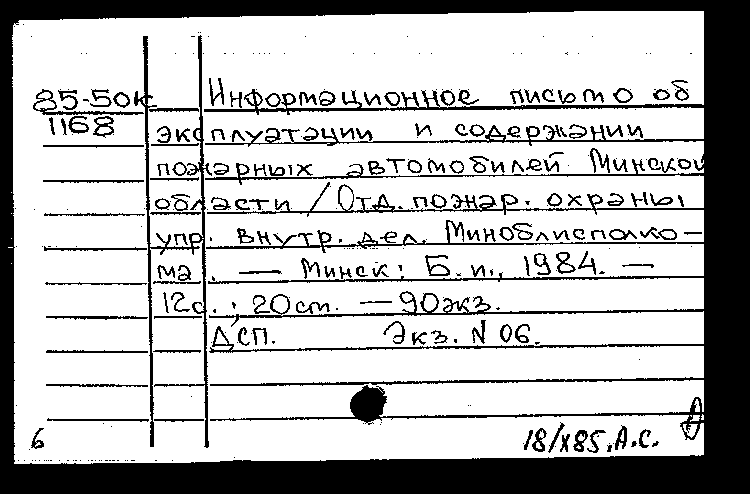 85-50к Информационное письмо об
1168 эксплуатации и содержании
пожарных автомобилей Минской
области / Отд. пожар. охраны
упр. внутр. дел. Миноблисполко-
ма. — Минск: Б. и., 1984. —
12с.; 20см. — 90экз.
ДСП. Экз. N 06.
6 18/X85. А.С.